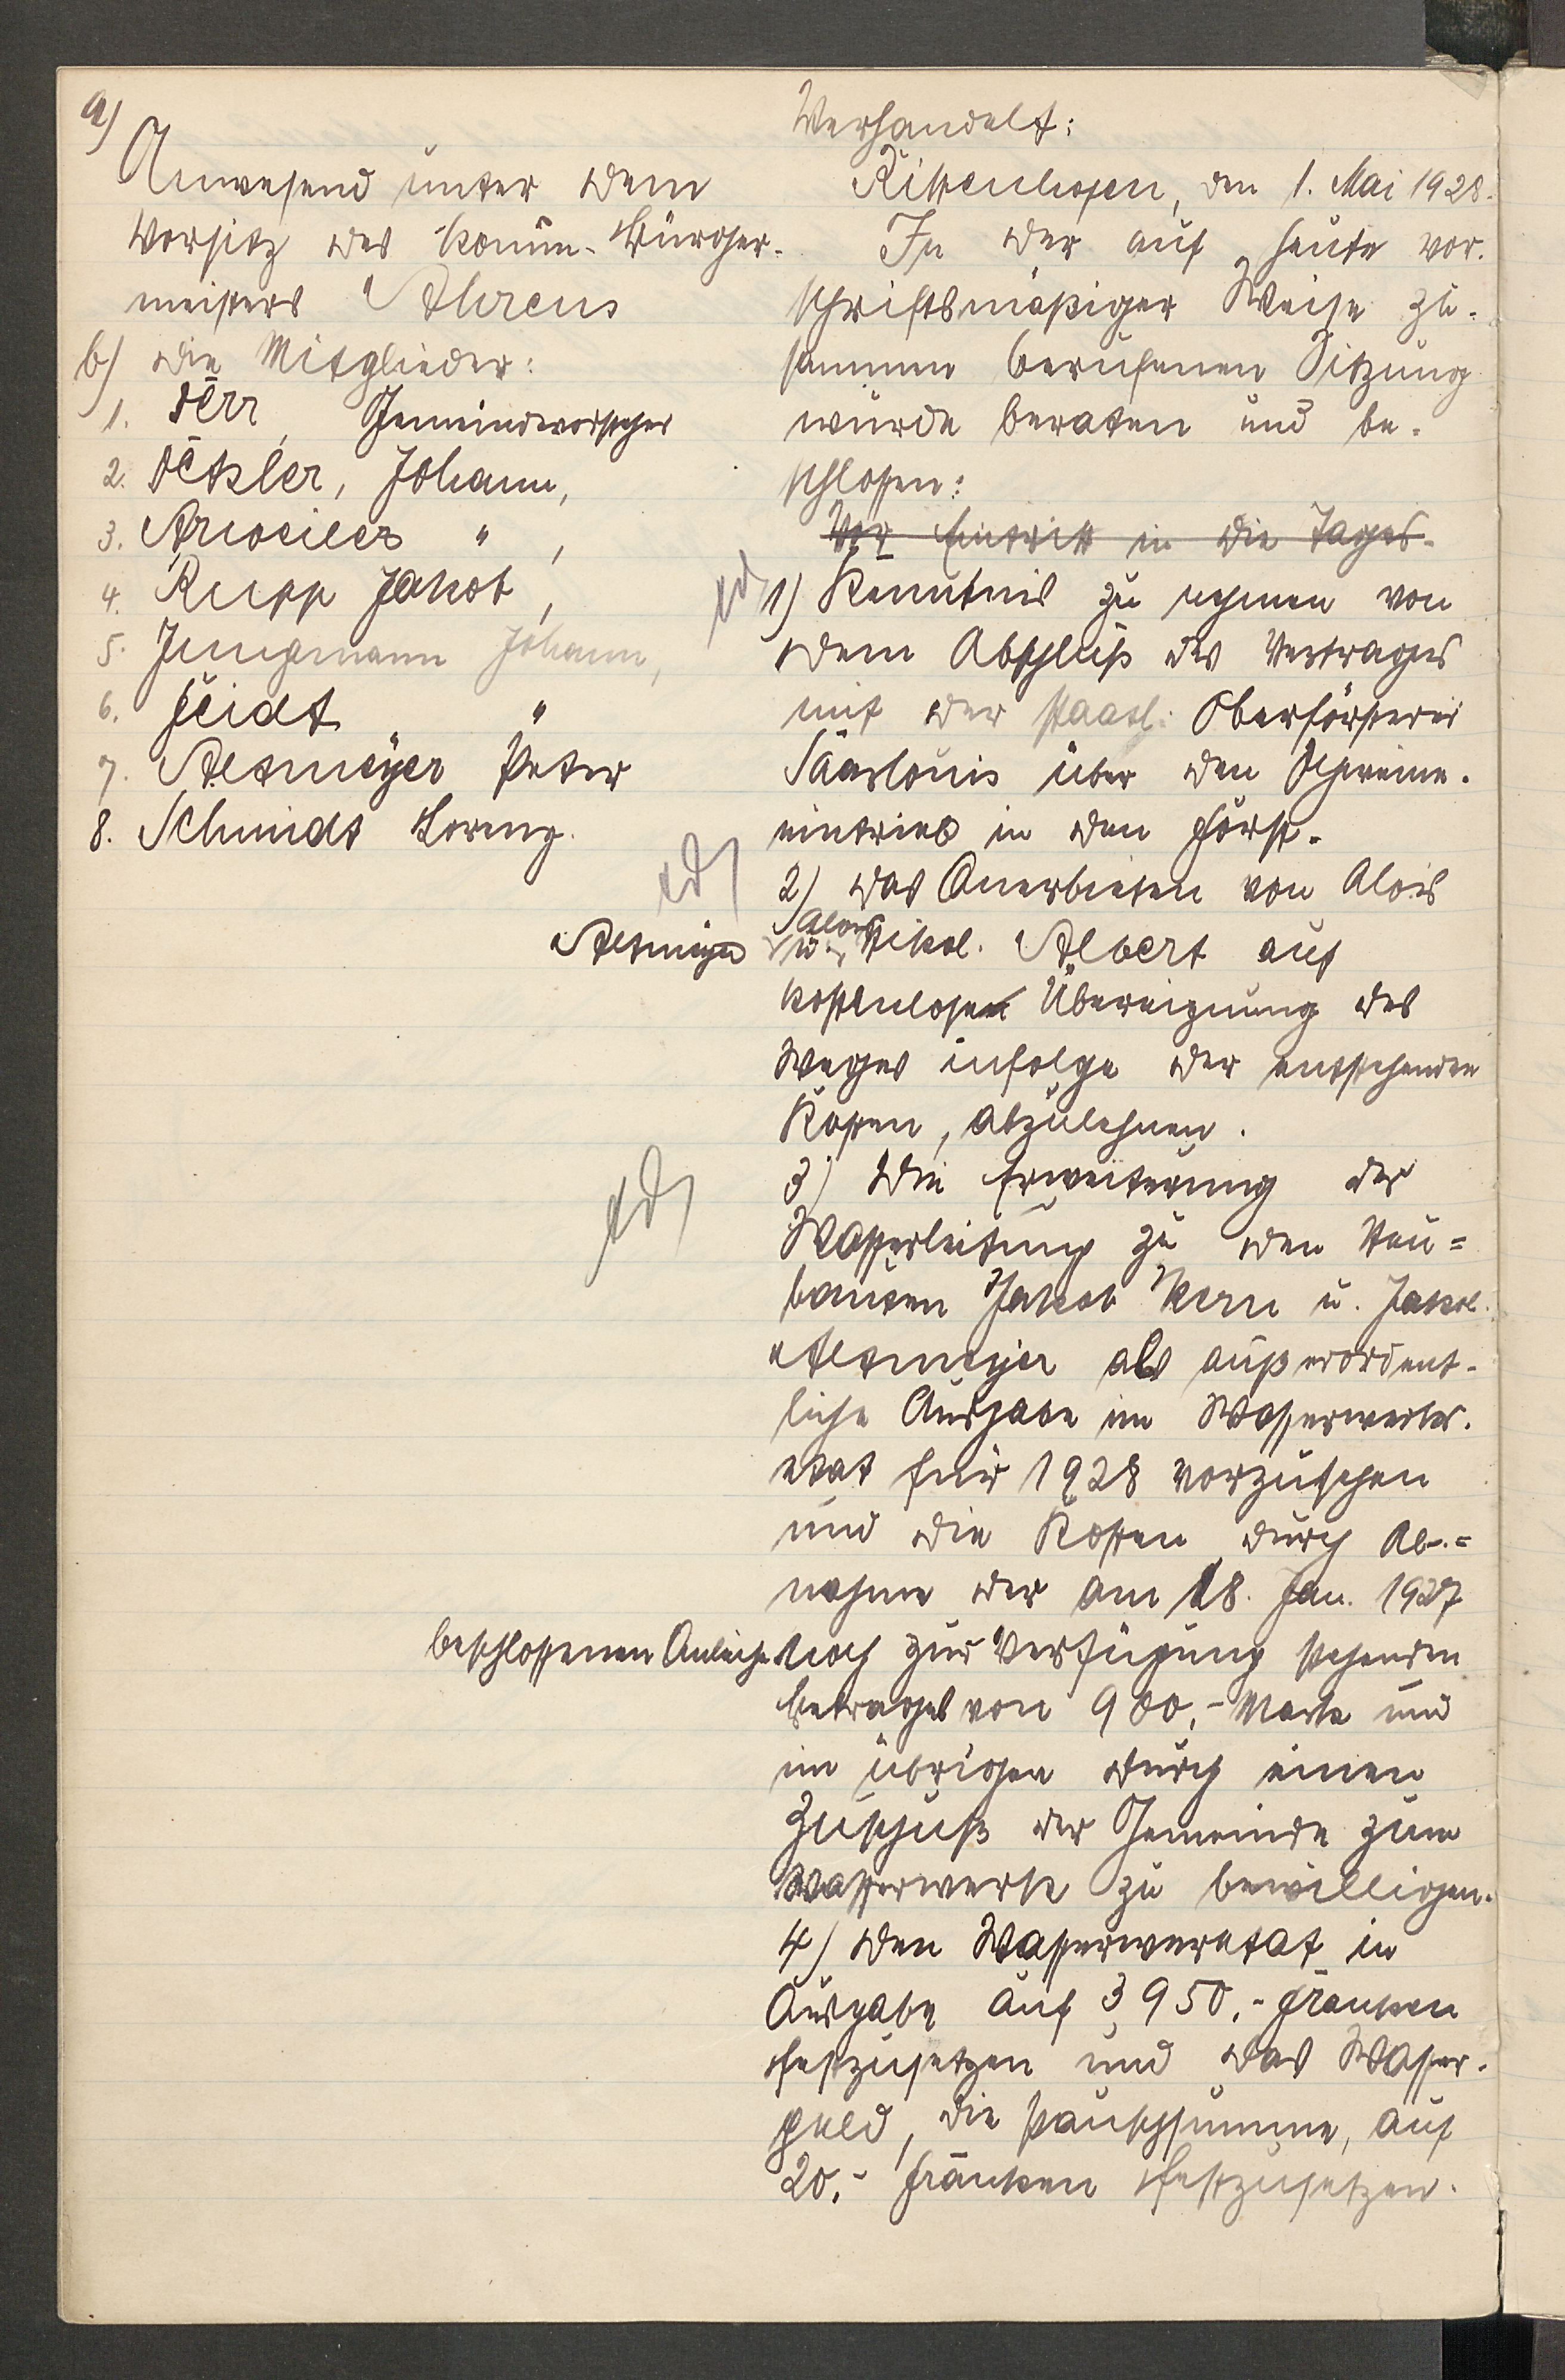 a)
Anwesend unter dem
Vorsitz des komm. Bürger-
meisters Ahrens
b) die Mitglieder:
1. Derr, Gemeindevorsteher
2. Detzler, Johann,
3. " ,
4. Rupp Jakob,
5. Jungmann Johann,
6. Feidt "
7. Altmeyer Peter
8. Schmidt Lorenz.
Verhandelt:
Rittenhofen, den 1. Mai 1928.
In der auf heute vor-
schriftsmäßiger Weise zu-
sammen berufenen Sitzung
wurde beraten und be-
schlossen:
Vor Eintritt in die Tages-
1) Kenntnis zu nehmen von
dem Abschluß des Vertrages
mit der staatl. Oberförsterei
Saarlouis über den Schweine-
eintrieb in den Forst.
ed
2) das Anerbieten von Alois
Altmeyer u. Nikol. Albert auf
kostenlose Übereignung des
Weges infolge der entstehenden
Kosten, abzulehnen.
ed
3) Die Erweiterung der
Wasserleitung zu den Neu=
bauten Jakob Kern u. Jakob
Altmeyer als außerordent-
liche Ausgabe im Wasserwerks-
etat für 1928 vorzusehen
und die Kosten durch Ab-=
nahme der am 18. Jan. 1927
beschlossenen Anleihe noch zur Verfügung stehenden
Betrages von 900,- Mark und
im übrigen durch einen
Zuschuß der Gemeinde zum
Wasserwerk zu bewilligen.
4) den Wasserwerketat in
Ausgabe auf 3950,- Franken
festzusetzen und das Wasser-
geld, die Pauschsumme, auf
20,- Franken festzusetzen.
ed